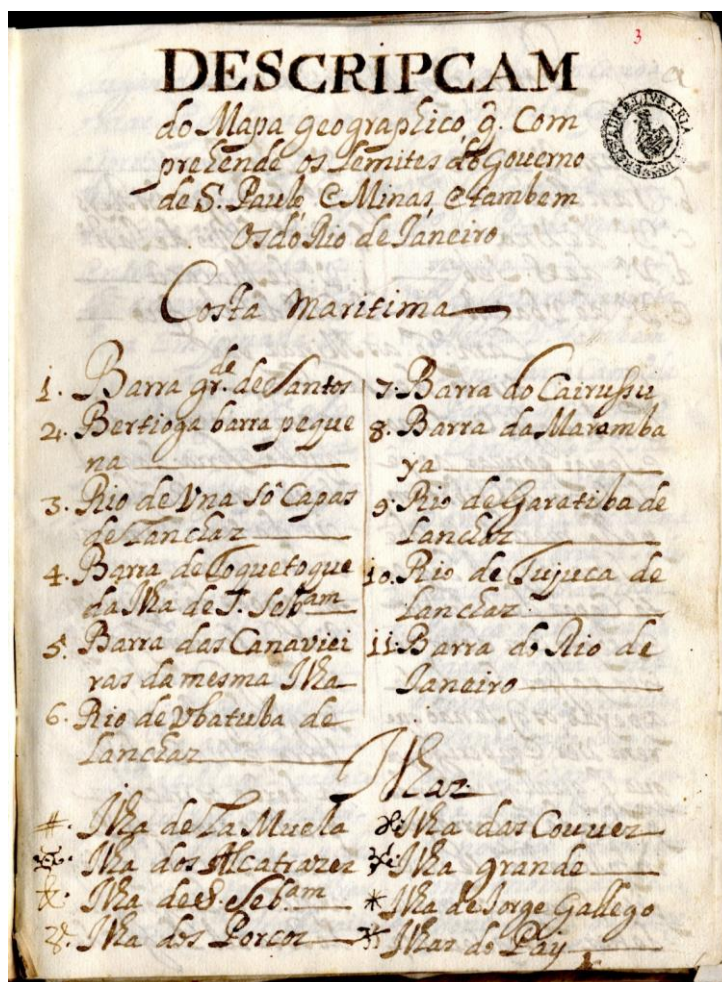 3
DESCRIPCAM
do Mapa geographico, q̃. Com
prehende os Lemites do Governo
de S. Paulo e Minas, e tambem
Os do Rio de Janeiro
Costa Maritima
1. Barra gr.de de Santos
2. Bertioga barra peque
na
3. Rio de Vna Só Capas
de Lanchaz
4. Barra de Toquetoque
da Ilha de S. Sebam
5. Barra das Canaviei
ras da mesma Ilha
6. Rio de Vbatuba de
Lanchaz
7. Barra do Cairussu
8. Barra da Maramba
ya
9. Rio de Garatiba de
Lanchaz
10. Rio de Tujuca de
Lanchaz
11. Barra do Rio de
Janeiro
Ilhaz
#. Ilha de La Muela
Ilha dos Alcatrazes
Ilha de S. Sebam
Ilha dos Porcos
Ilha das Couuez
Ilha grande
* Ilha de Jorge Gallego
Ilhaz do Pay